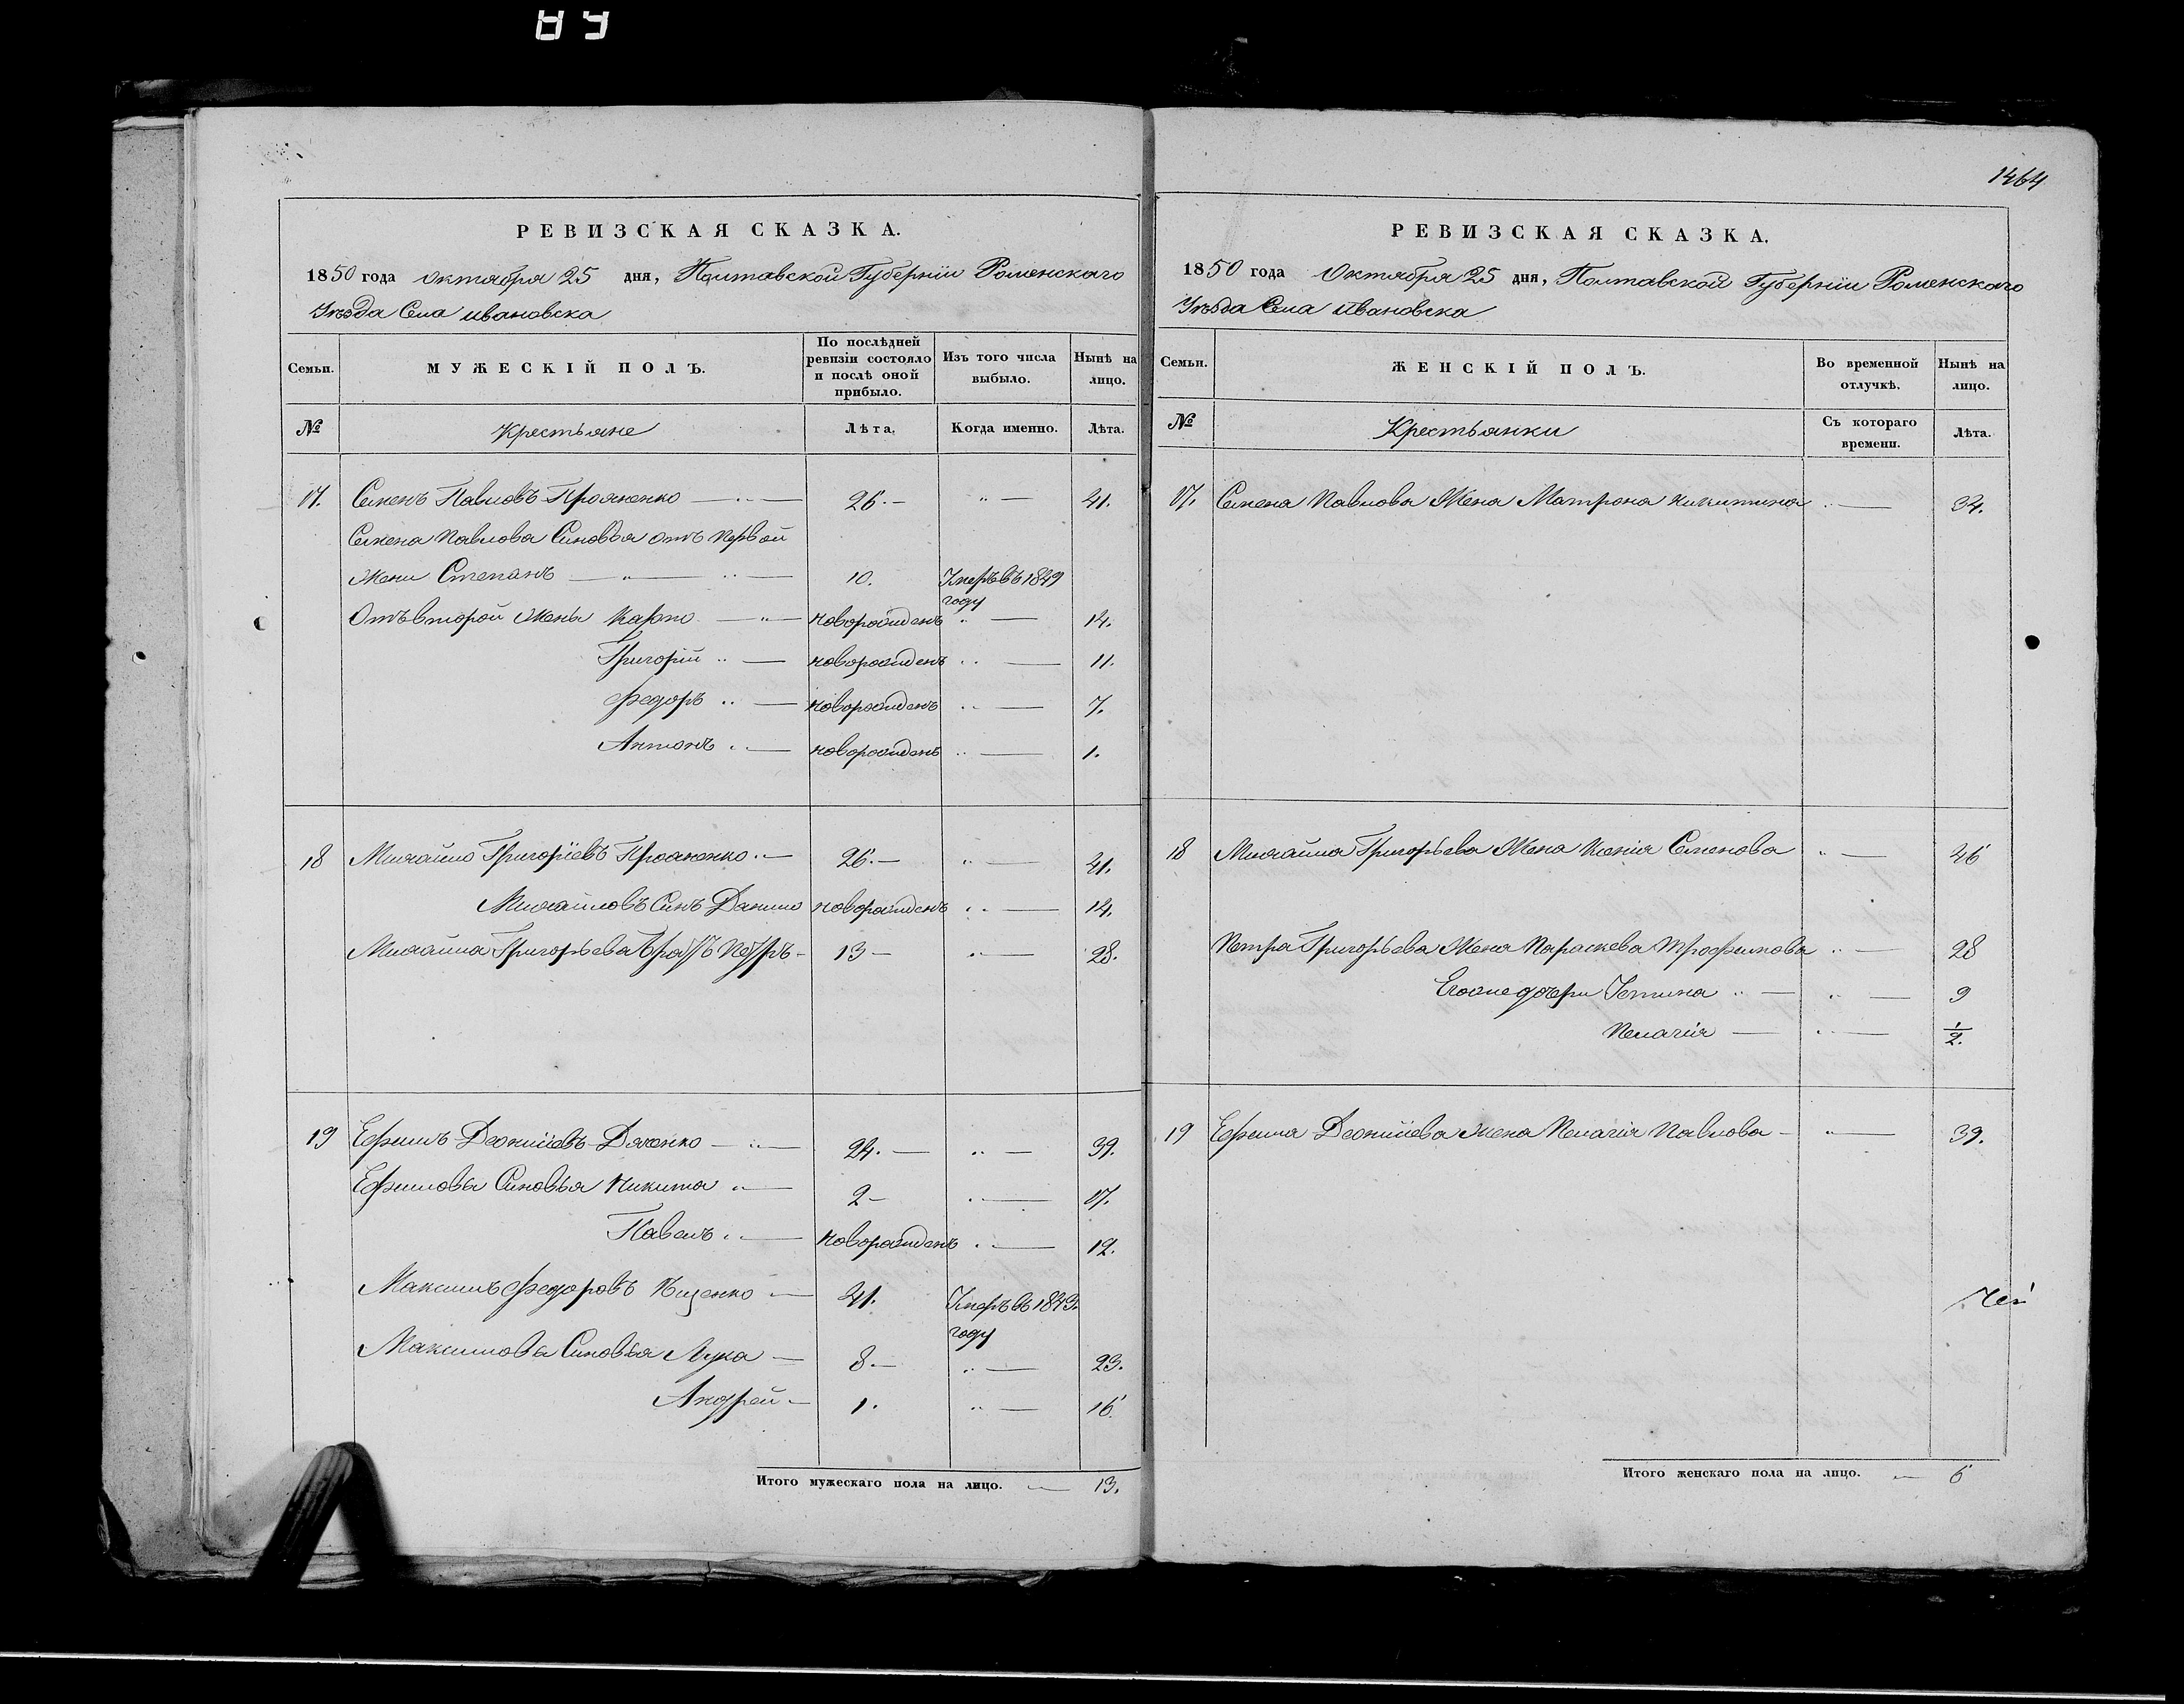 1464
РЕВИЗСКАЯ СКАЗКА.
1850 года Октября 25 дня, Полтавской Губерніи Роменскаго
Уѣзда Села Ивановска
Семьи. МУЖЕСКІЙ ПОЛЪ. По послѣдней ревизіи состояло и послѣ оной прибыло. Изъ того числа выбыло. Нынѣ на лицо.
№ Крестьяне Лѣта. Когда именно. Лѣта.
17. Семенъ Павловъ 26. — " — 41.
Семена Павлова Сыновья отъ первой
Жены Степанъ — " — 10. Умеръ въ 1849 году
Отъ второй Жены Карпо — " — новорожденъ " — 14.
Григорій " — новорожденъ " — 11.
Федоръ " — новорожденъ " — 7.
Антонъ " — новорожденъ " — 1.
18 Михайло Григоріевъ " — 26. — " — 41.
Михайловъ Сынъ Данило новорожденъ " — 14.
Михайла Григорьева Братъ Петръ — 13 — " — 28.
19 Ефимъ Деонисіевъ Дяченко — " — 24. — " — 39.
Ефимовы Сыновья Никита " — 2 — " — 17.
Павелъ " — новорожденъ " — 12.
Максимъ Федоровъ Ищенко " — 41. Умеръ въ 1843. году
Максимовы Сыновья Лука — 8. — " — 23.
Андрей — 1. " — 16.
Итого мужескаго пола на лицо. — 13.
РЕВИЗСКАЯ СКАЗКА.
1850 года Октября 25 дня, Полтавской Губерніи Роменскаго
Уѣзда Села Ивановска
Семьи. ЖЕНСКІЙ ПОЛЪ. Во временной отлучкѣ. Нынѣ на лицо.
№ Крестьянки Съ котораго времени. Лѣта.
17. Семена Павлова Жена Матрона Никитина " — 34.
18 Михайла Григорьева Жена Ксенія Семенова " — 46
Петра Григорьева Жена Параскева Трофимова " — 28
Егоже дочери Устина " — " — 9
Пелагія — " — 1/2.
19 Ефима Деонисіева жена Пелагія Павлова — " — 39.
Итого женскаго пола на лицо. — 6